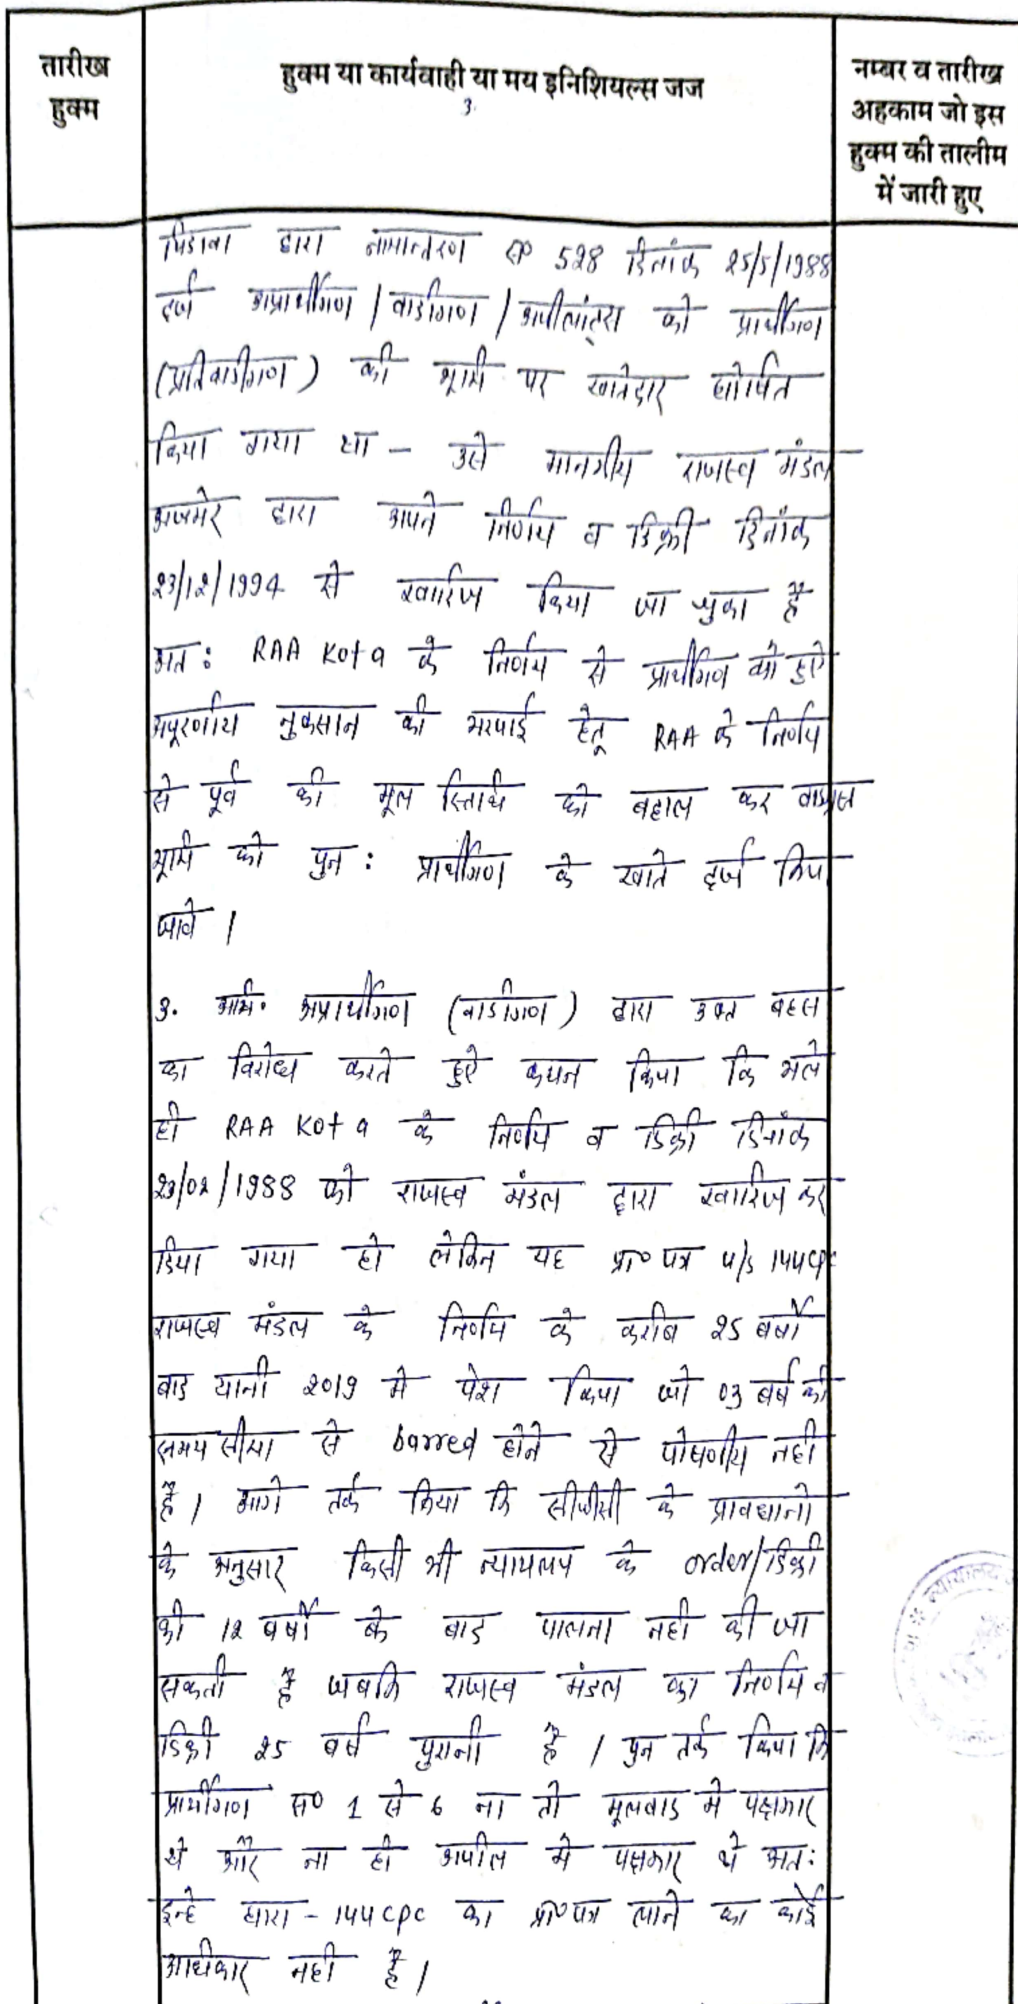 तारीख
हुक्म
हुक्म या कार्यवाही या मय इनिशियल्स जज
3.
नम्बर व तारीख
अहकाम जो इस
हुक्म की तालीम
में जारी हुए
पिडावा द्वारा नामान्तरण स० 528 दिनांक 25/5/1988
दर्ज अप्रार्थीगण / वादीगण / अपीलांट्स को प्रार्थीगण
(प्रतिवादीगण) की भूमि पर खातेदार घोषित
किया गया था – उसे माननीय राजस्व मंडल
अजमेर द्वारा अपने निर्णय व डिक्री दिनांक
23/12/1994 से खारिज किया जा चुका है
अतः RAA Kota के निर्णय से प्रार्थीगण को हुऐ
अपूरणीय नुकसान की भरपाई हेतू RAA के निर्णय
से पूर्व की मूल स्तिथि को बहाल कर वादग्रस्त
भूमि को पुनः प्रार्थीगण के खाते दर्ज किया
जावे।
3. अभि. अप्रार्थीगण (वादीगण) द्वारा उक्त बहस
का विरोध करते हुऐ कथन किया कि भले
ही RAA Kota के निर्णय व डिक्री दिनांक
23/02/1988 को राजस्व मंडल द्वारा खारिज कर
दिया गया हो लेकिन यह प्रा० पत्र u/s 144 CPC
राजस्व मंडल के निर्णय के करीब 25 वर्षो
बाद यानी 2019 मे पेश किया जो 03 वर्ष की
समय सीमा से barred होने से पोषणीय नही
है। आगे तर्क किया कि सीपीसी के प्रावधानो
के अनुसार किसी भी न्यायालय के order/डिक्री
की 12 वर्षो के बाद पालना नही की जा
सकती है जबकि राजस्व मंडल का निर्णय व
डिक्री 25 वर्ष पुरानी है। पुन तर्क किया कि
प्रार्थीगण स० 1 से 6 ना तो मूलवाद मे पक्षकार
थे और ना ही अपील मे पक्षकार थे अतः
इन्हे धारा – 144 CPC का प्रा० पत्र लाने का कोई
अधिकार नही है।
न्यायालय